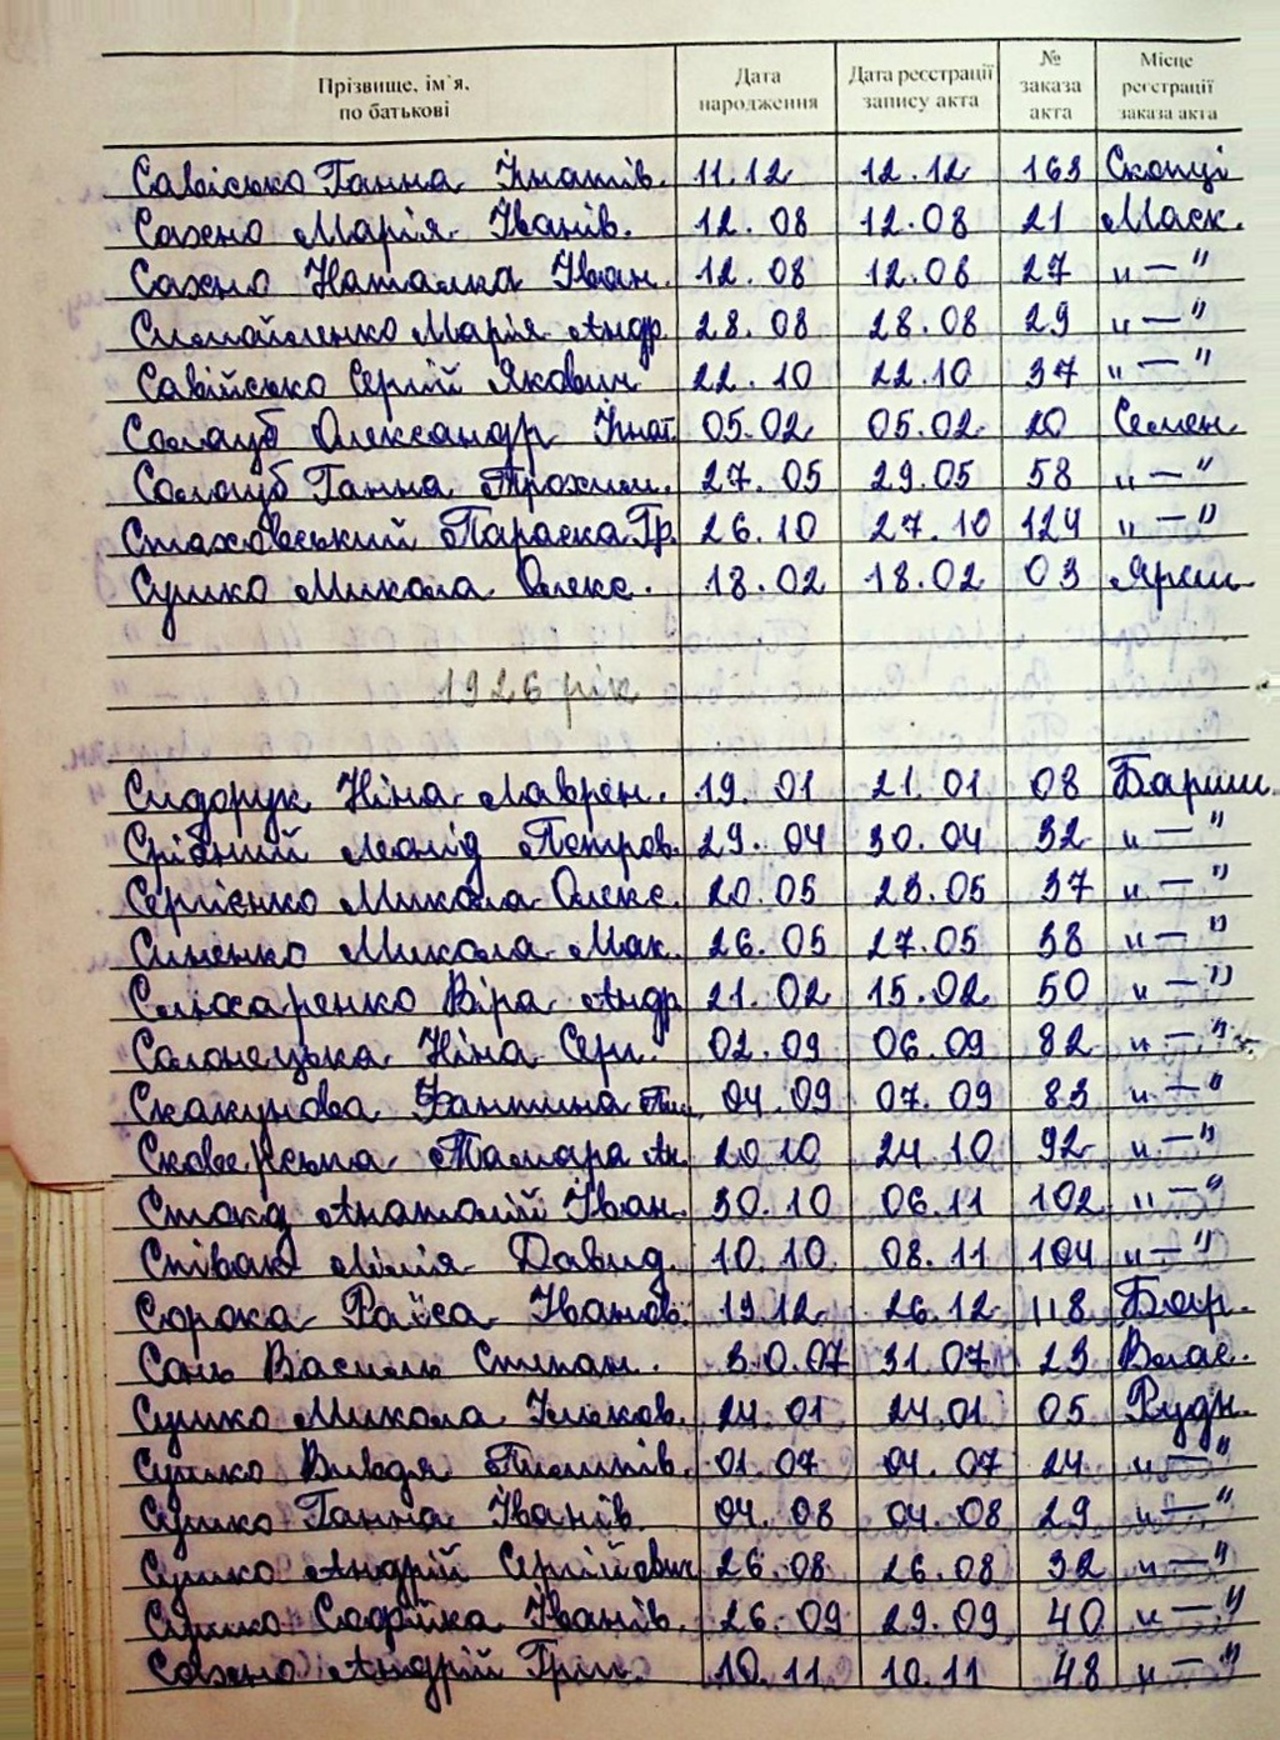 Прізвище, ім`я, по батькові Дата народження Дата реєстрації запису акта № заказа акта Місце реєстрації заказа акта
Савісько Ганна Ігнатів. 11.12 12.12 163 Скопці
Сахно Марія Іванів. 12.08 12.08 21 Маск.
Сахно Наталка Іван. 12.08 12.08 27 "—"
Марія Андр. 28.08 28.08 29 "—"
Савійсько Сергій Якович 22.10 22.10 37 "—"
Солоуб Олександр Ігнат. 05.02 05.02 20 Семен.
Солоуб Ганна Трохим. 27.05 29.05 58 "—"
Стаховський Параска Гр. 26.10 27.10 124 "—"
Сушко Микола Олекс. 18.02 18.02 03 Яреш.
1926 рік
Сидорук Ніна Лаврен. 19.01 21.01 08 Бариш.
Срібний Леонід Петров. 29.04 30.04 32 "—"
Сергієнко Микола Олекс. 20.05 23.05 37 "—"
Синенко Микола Мак. 26.05 27.05 38 "—"
Слюсаренко Віра Андр. 21.02 15.02 50 "—"
Солонецька Ніна Сер. 02.09 06.09 82 "—"
Скакунова 04.09 07.09 83 "—"
Тамара Ан. 20.10 24.10 92 "—"
Анатолій Іван. 30.10 06.11 102 "—"
Співак Лілія Давид. 10.10 08.11 104 "—"
Сорока Раїса Іванов. 19.12 26.12 118 Бар.
Сань Василь Степан. 30.07 31.07 23 Влас.
Сушко Микола Ільков. 24.01 24.01 05 Рудн.
Сушко Пилипів. 01.07 04.07 24 "—"
Сушко Ганна Іванів. 04.08 04.08 29 "—"
Сушко Андрій Сергійович 26.08 26.08 32 "—"
Сушко Софійка Іванів. 26.09 29.09 40 "—"
Сахно Андрій Григ. 10.11 10.11 48 "—"